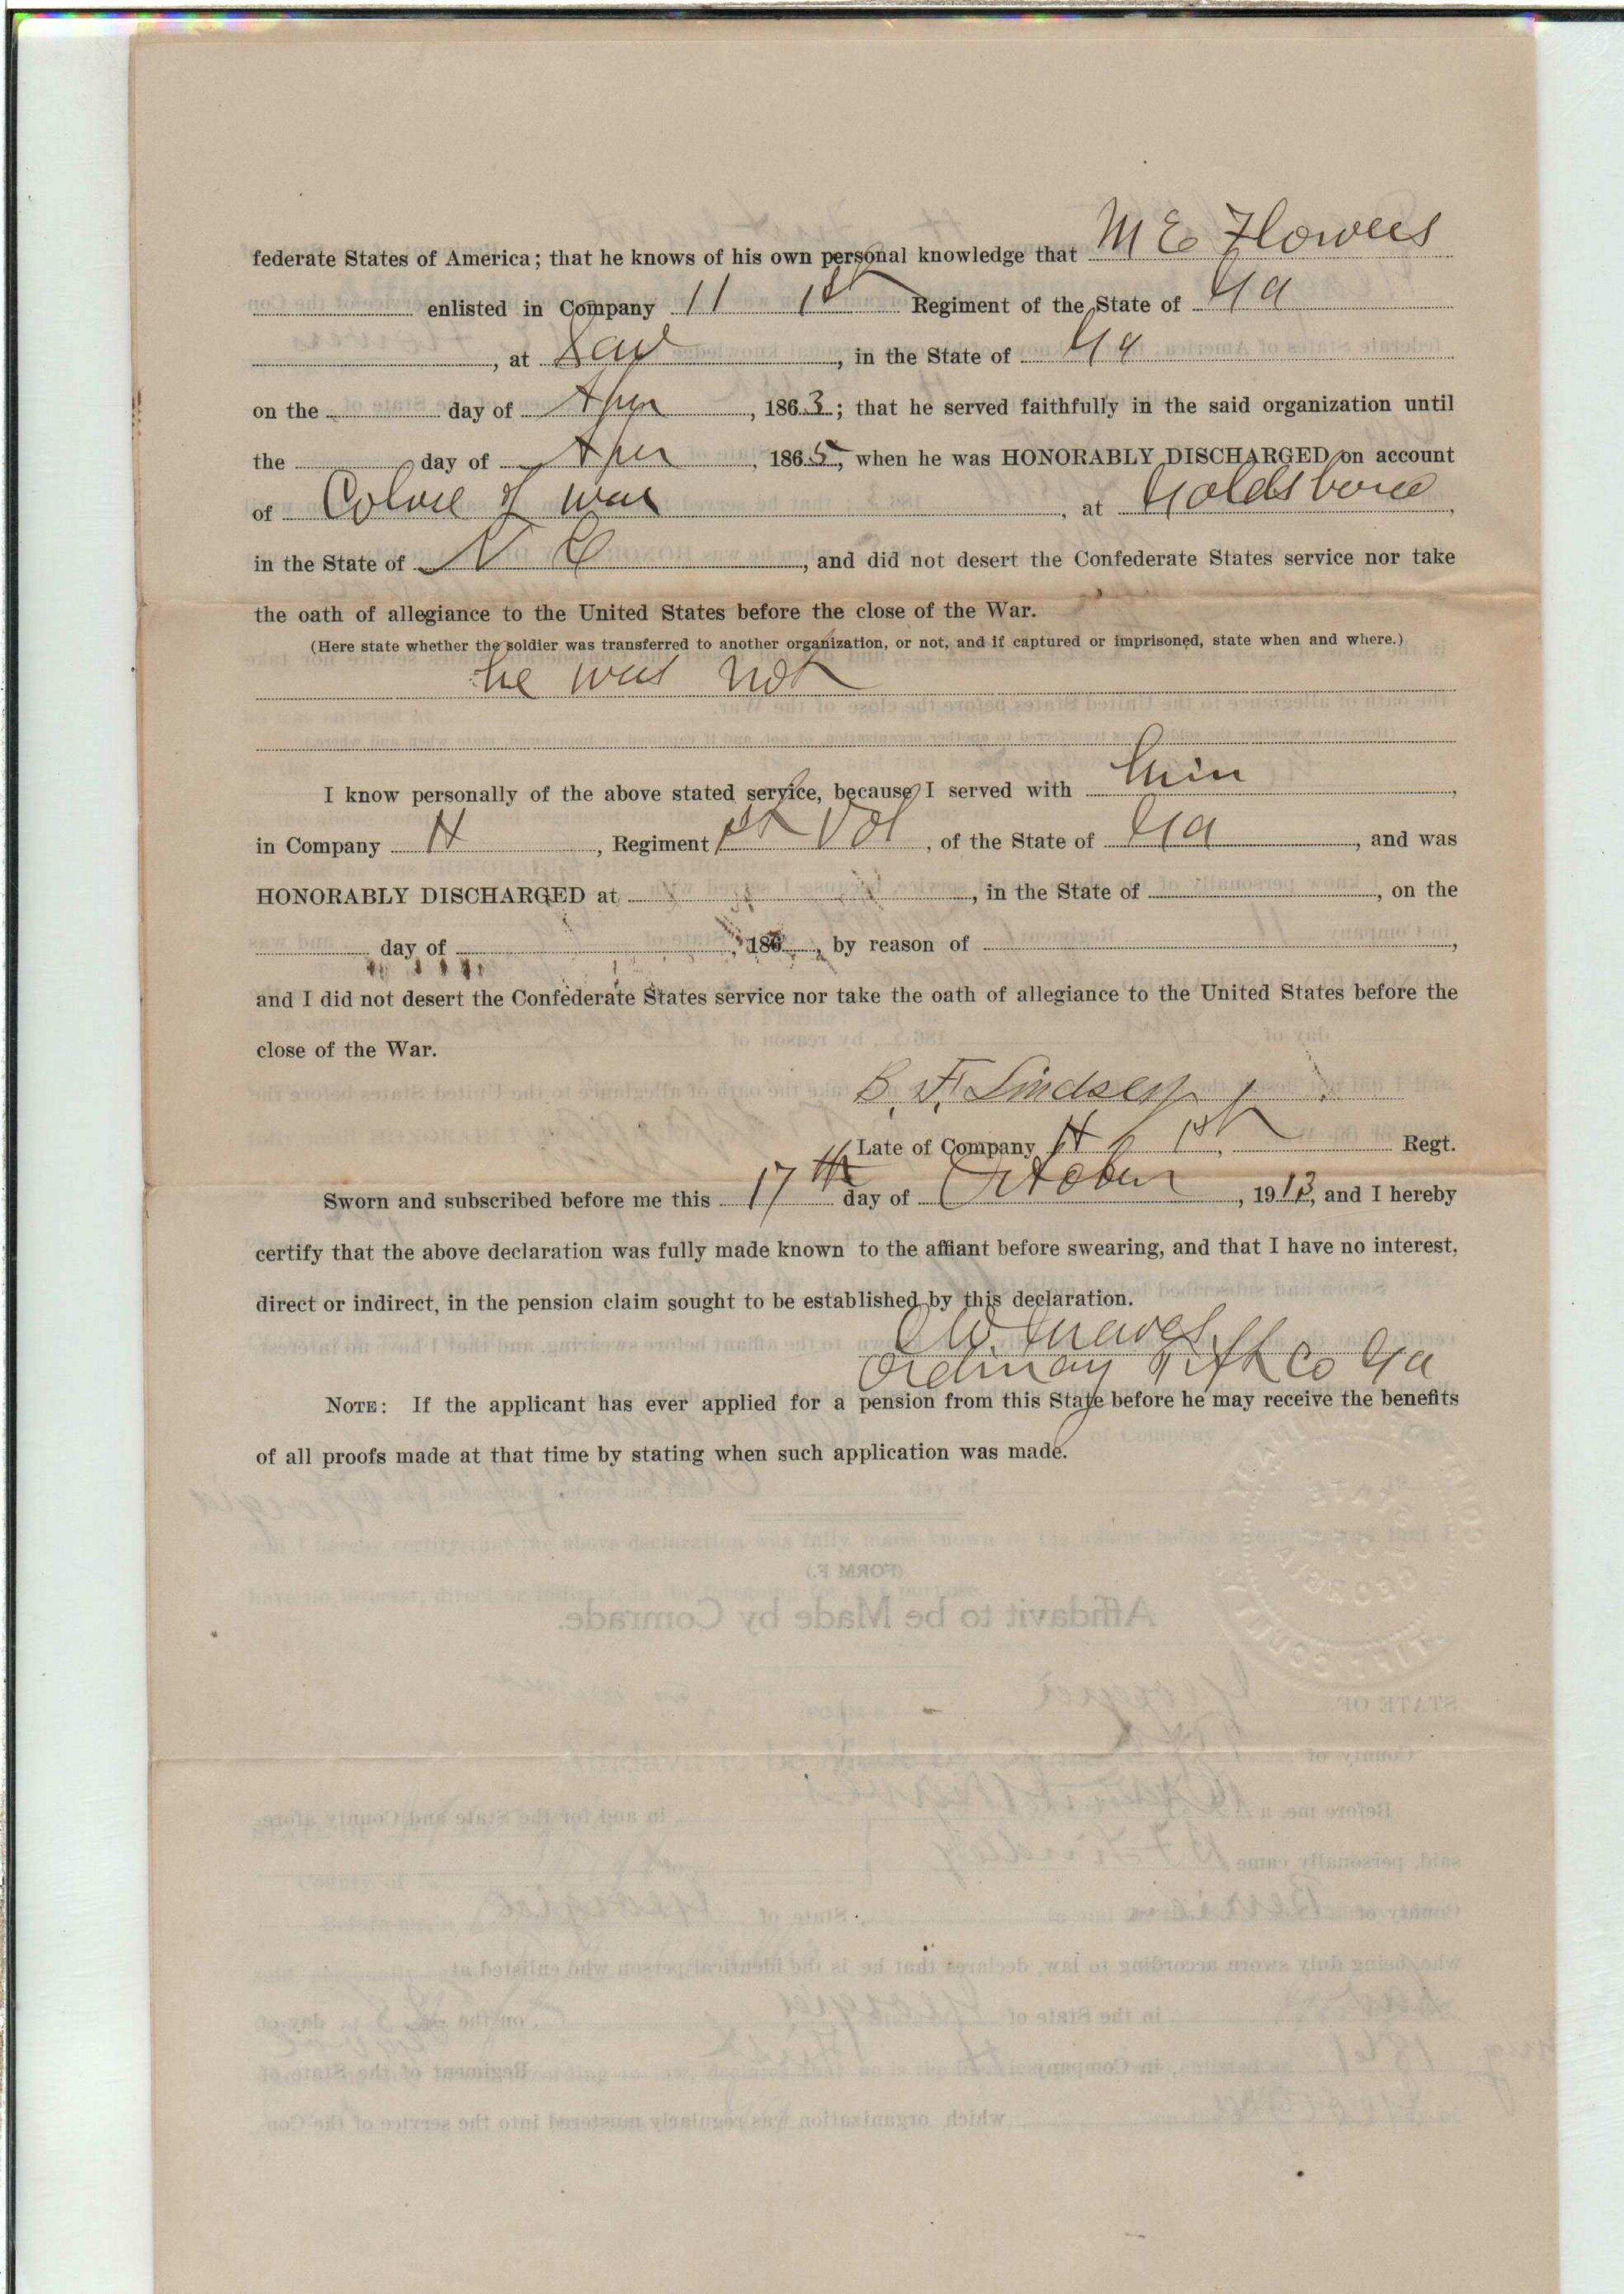 federate States of America; that he knows of his own personal knowledge that M E Flowers
enlisted in Company H 1st Regiment of the State of Ga
, at Sav , in the State of Ga
on the day of Aper , 1863; that he served faithfully in the said organization until
the day of Aper , 1865, when he was HONORABLY DISCHARGED on account
of Colse of war , at Goldsboro ,
in the State of N C , and did not desert the Confederate States service nor take
the oath of allegiance to the United States before the close of the War.
(Here state whether the soldier was transferred to another organization, or not, and if captured or imprisoned, state when and where.)
he was not
I know personally of the above stated service, because I served with him ,
in Company H , Regiment 1st Vol , of the State of Ga , and was
HONORABLY DISCHARGED at , in the State of , on the
day of , 186 , by reason of ,
and I did not desert the Confederate States service nor take the oath of allegiance to the United States before the
close of the War.
B. F. Lindsey
Late of Company H 1st , Regt.
Sworn and subscribed before me this 17th day of October , 1913, and I hereby
certify that the above declaration was fully made known to the affiant before swearing, and that I have no interest,
direct or indirect, in the pension claim sought to be established by this declaration.
C W. Graves
Ordinary Tift Co Ga
NOTE: If the applicant has ever applied for a pension from this State before he may receive the benefits
of all proofs made at that time by stating when such application was made.